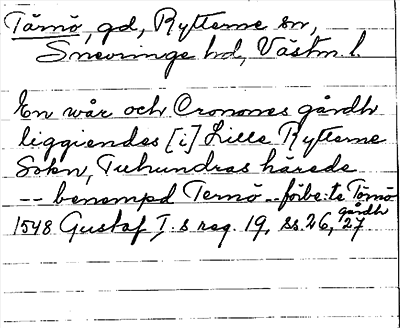 Tärnö, gd, Rytterne sn,
Snevringe hd, Västm. l.
En wår och Cronones gårdh
liggiendes [i] Lille Rytterne
Sokn, Tuhundras härede
-- benempd Ternö -- förbe:te Törnö
gårdh
1548 Gustaf I.s reg. 19, ss. 26, 27.